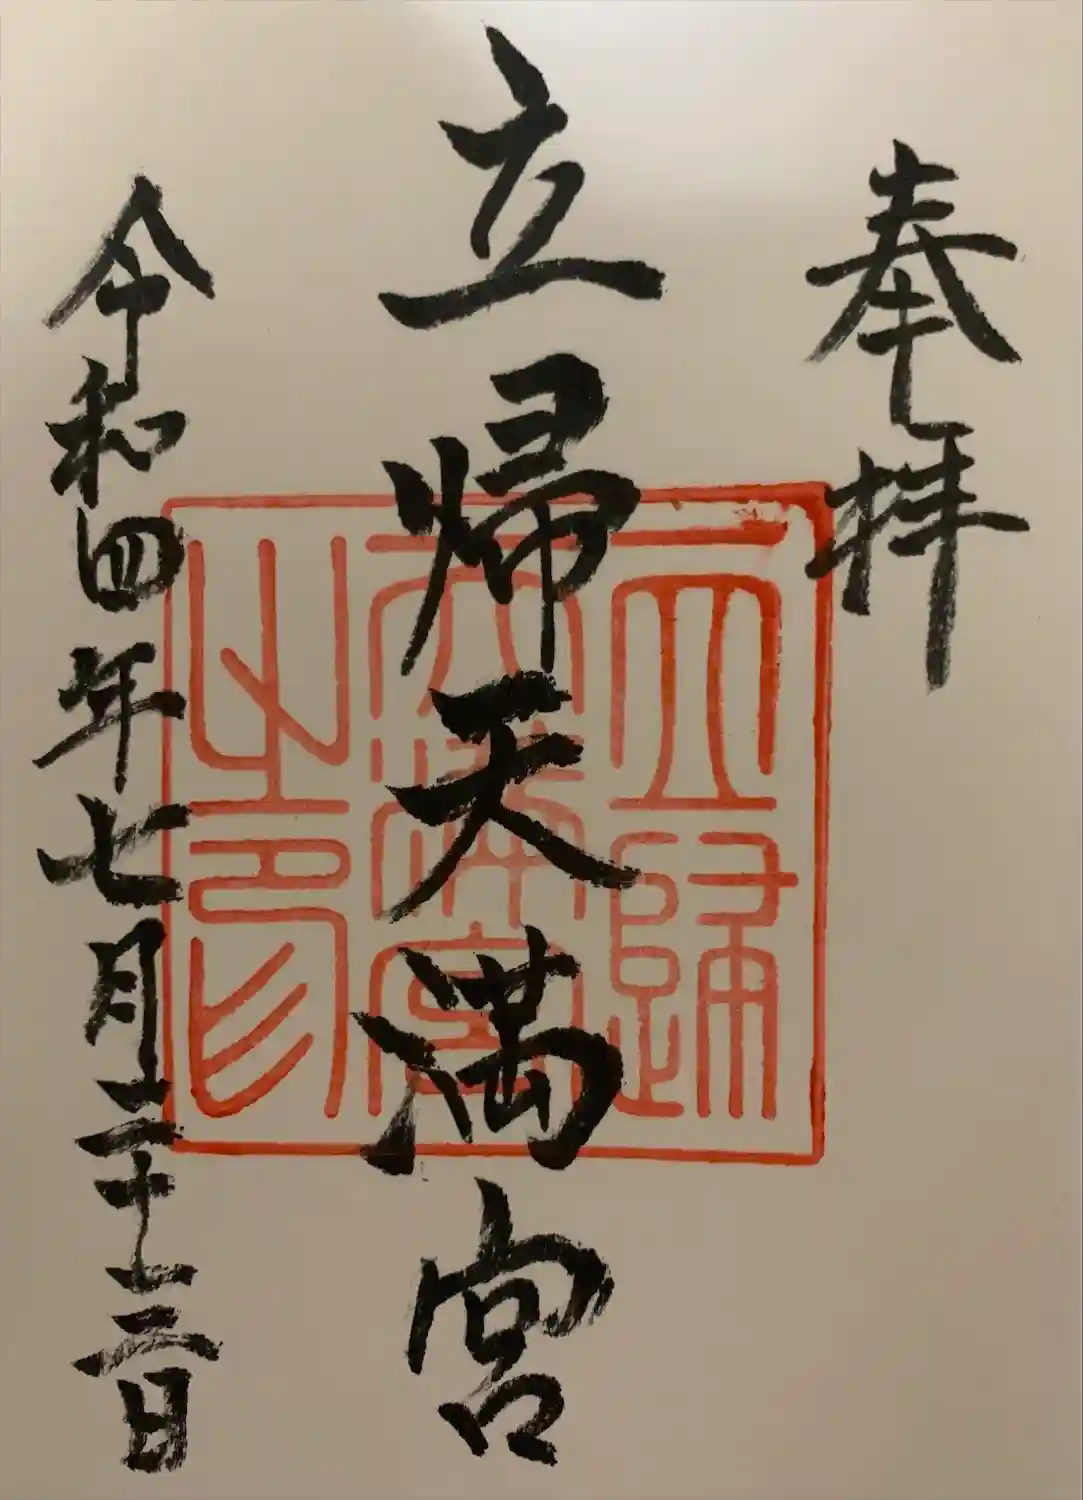 奉拝
立帰天満宮
令和四年七月二十三日
立歸
天滿宮
之印